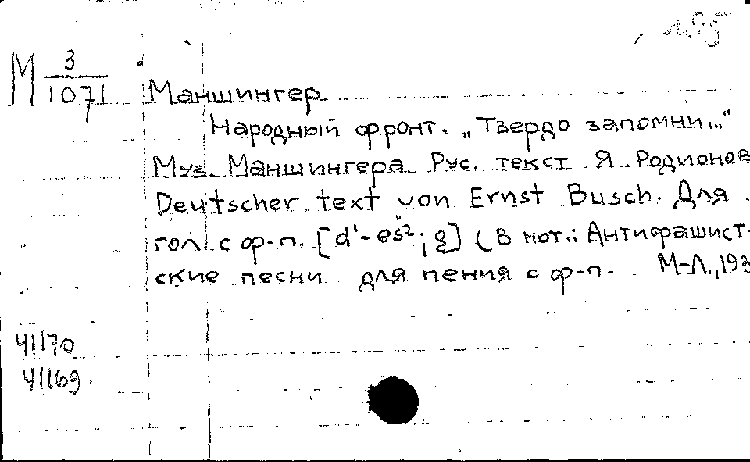 185
М 3/1071
Маншингер
Народный фронт. „Твердо запомни..."
Муз. Маншингера Рус. текст Я. Родионов
Deutscher text von Ernst Busch. Для
гол. с ф-п. [d'-es²; g] (В нот.: Антифашист-
ские песни для пения с ф-п. М-Л., 193
41170
41169